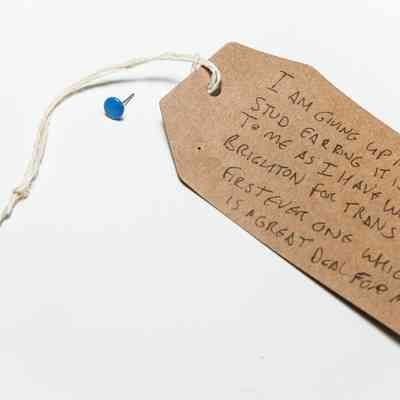 I AM GIVING UP
STUD EARRING IT IS
TO ME AS I HAVE
BRIGHTON FOR TRANS
FIRST EVER ONE WHIC
IS A GREAT DEAL FOR